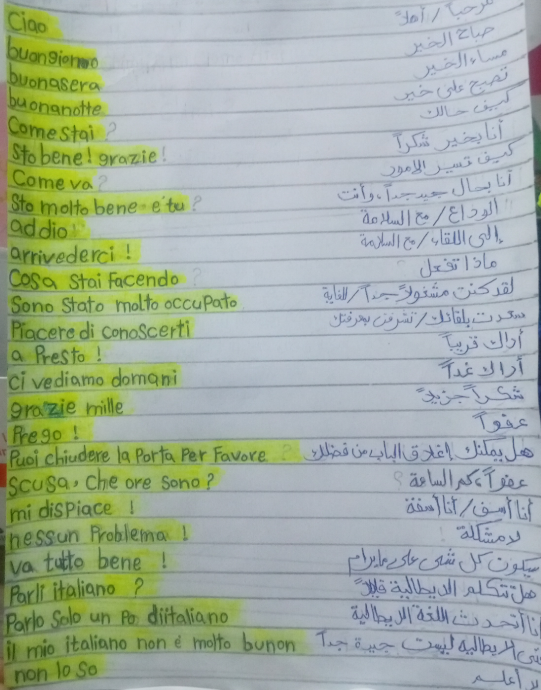 Ciao مرحبا / أهلاً
buongiorno صباح الخير
buonasera مساء الخير
buonanotte تصبح على خير
Come stai ? كيف حالك
Sto bene! grazie! أنا بخير شكراً
Come va ? كيف تسير الامور
Sto molto bene e tu ? أنا بحال جيد جداً، وأنت
addio! الوداع / مع السلامة
arrivederci ! إلى اللقاء / مع السلامة
Cosa Stai facendo ? ماذا تفعل
Sono Stato molto occupato لقد كنت مشغولاً جداً / للغاية
Piacere di conoscerti سعدت بلقائك / تشرفت بمعرفتك
a Presto ! أراك قريباً
ci vediamo domani أراك غداً
grazie mille شكراً جزيلاً
Prego ! عفواً
Puoi chiudere la Porta Per Favore ? هل يمكنك إغلاق الباب من فضلك
Scusa, Che ore Sono ? عفواً، كم الساعة ؟
mi disPiace ! أنا آسف / أنا آسفة
nessun Problema ! لا مشكلة !
va tutto bene ! سيكون كل شئ على مايرام
Parli italiano ? هل تتكلم الايطالية قليلاً
Parlo Solo un Po di italiano أنا أتحدث اللغة الايطالية
il mio italiano non é molto bunon الايطالية ليست جيدة جداً
non lo so لا أعلم